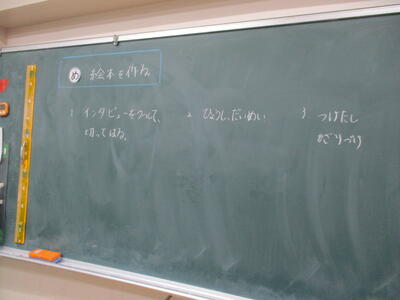 め 絵本を作ろう
1 インタビューをうつして、
切ってはる。
2 ひょうし、だいめい
3 つけたし
かざりづけ